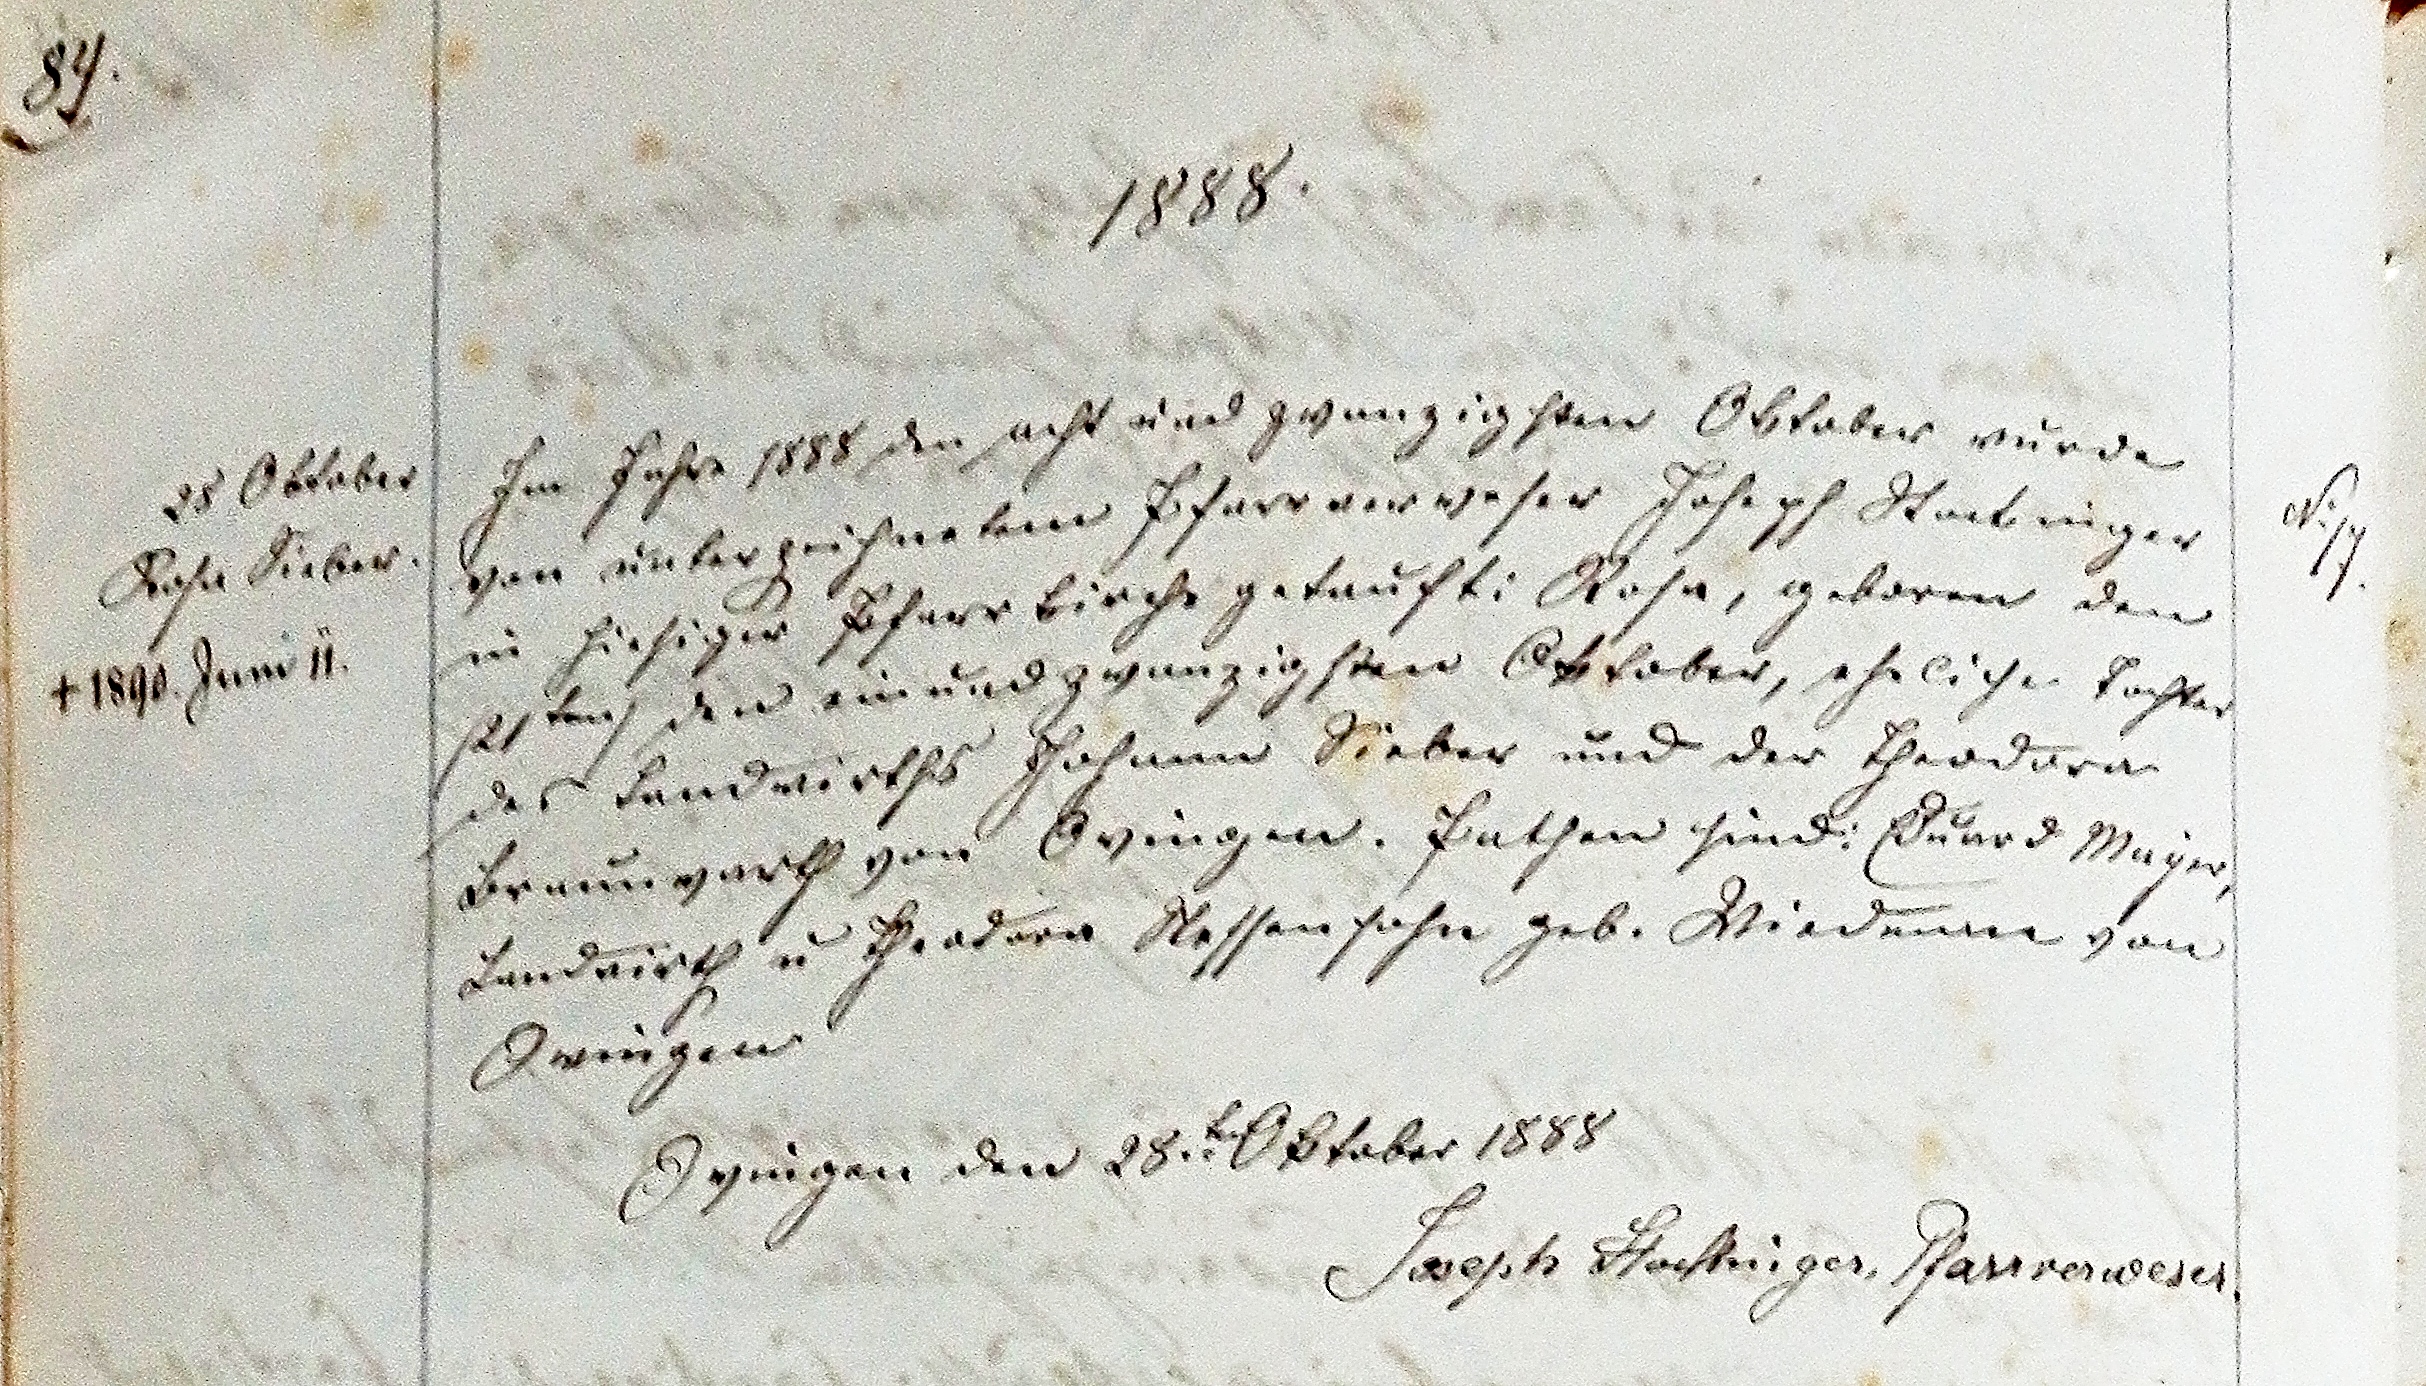 84.
1888.
28 Oktober
Rosa Sieber.
+ 1890. Juni 11.
Im Jahre 1888 den acht und zwanzigsten Oktober wurde
von unterzeichnetem Pfarrverweser Joseph
in hiesiger Pfarrkirche getauft: Rosa, geboren den
21ten den einundzwanzigsten Oktober, eheliche Tochter
des Landwirths Johann Sieber und der Theodora
Braunwarth von Owingen. Pathen sind: Eduard Mayer,
Landwirth u Theodora Nessensohn geb. Wiedemann von
Owingen
Owingen den 28. Oktober 1888
Joseph Pfarrverweser.